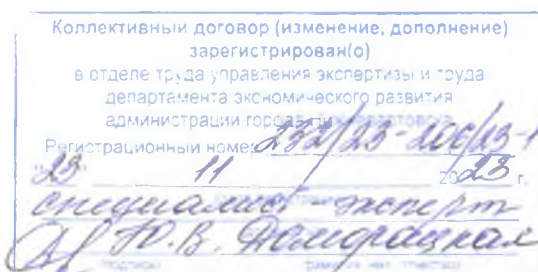 Коллективный договор (изменение, дополнение)
зарегистрирован(о)
в отделе труда управления экспертизы и труда
департамента экономического развития
администрации города Нижневартовска
Регистрационный номер 232/23-200/23-1
"23" 11 2023 г.
специалист эксперт
Ю.В.
(подпись) (фамилия, имя, отчество)